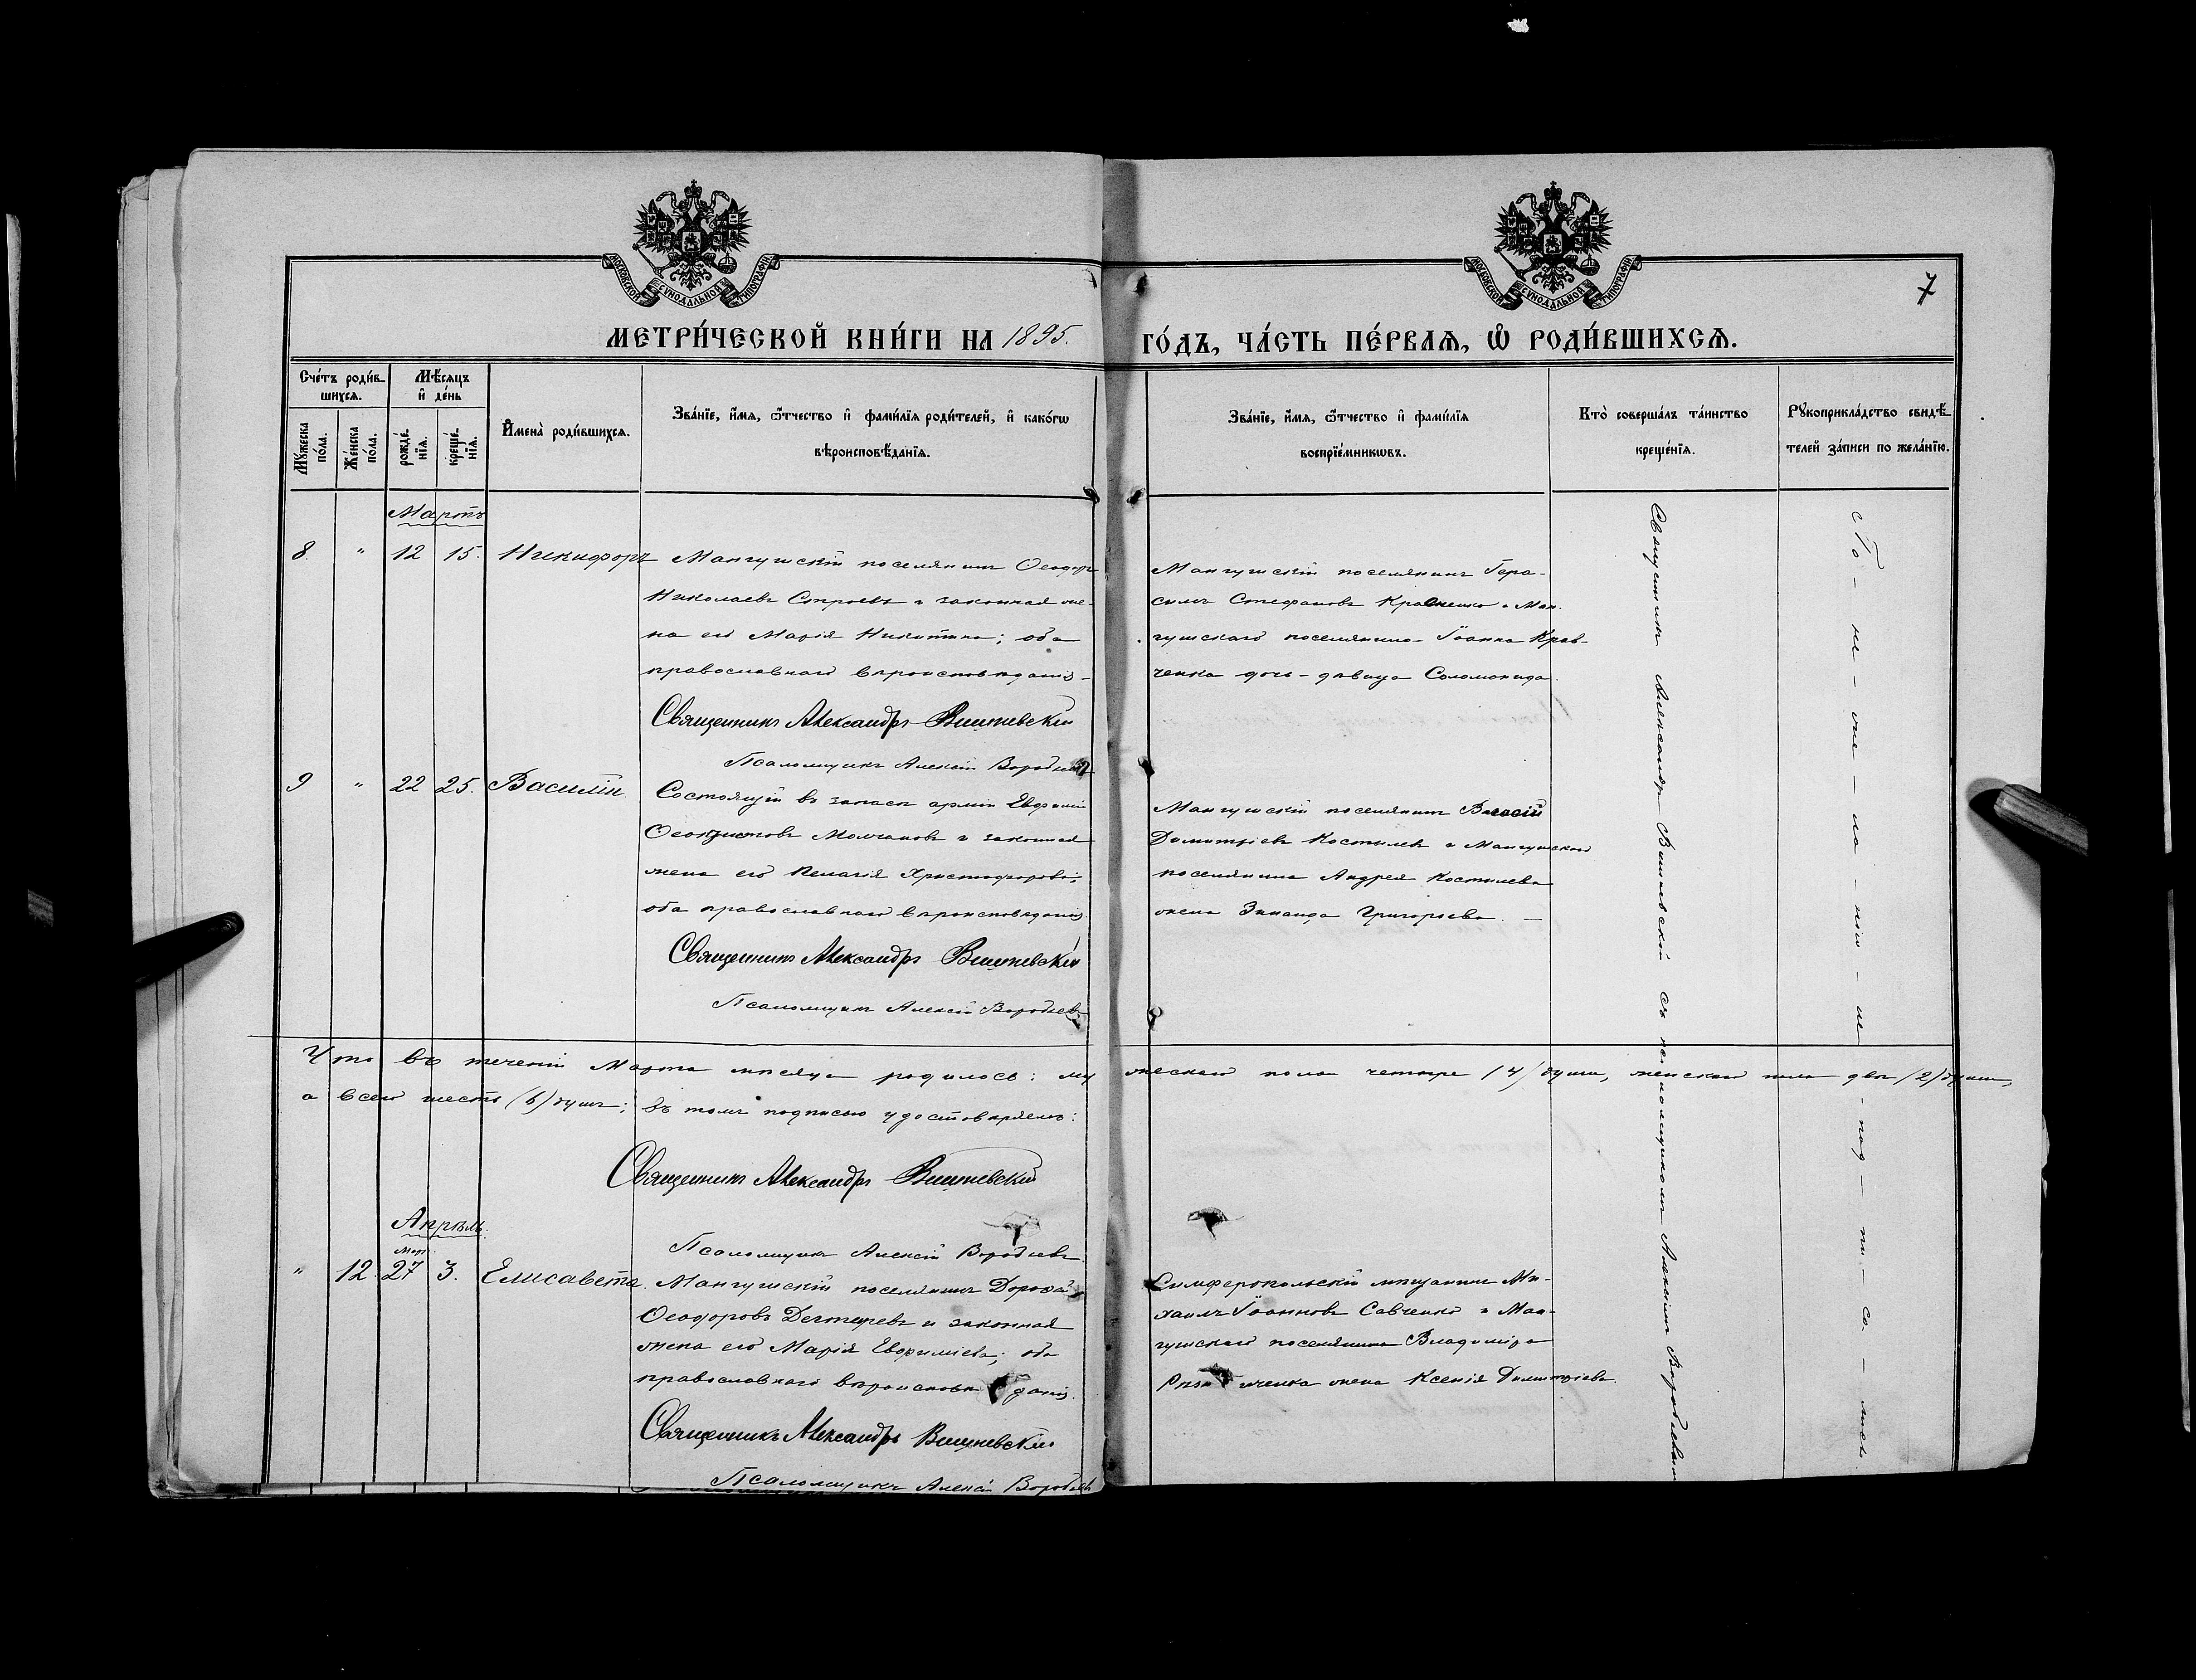 МОСКОВСКОЙ СУНОДАЛЬНОЙ ТИПОГРАФІИ
МОСКОВСКОЙ СУНОДАЛЬНОЙ ТИПОГРАФІИ
7
МЕТРИ́ЧЕСКОЙ КНИ́ГИ НА 1895.
ГО́ДЪ, ЧА́СТЬ ПЕ́РВАѦ, Ѡ РОДИ́ВШИХСѦ.
Сче́тъ роди́в-
шихсѧ.
Му́жеска по́ла.
Же́нска по́ла.
Мѣ́сѧцъ
и де́нь
рожде́-
нїѧ.
креще́-
нїѧ.
Имена̀ роди́вшихсѧ.
Зва́нїе, и́мѧ, ѻ́тчество и фами́лїѧ роди́телей, и како́гѡ
вѣроисповѣ́данїѧ.
Зва́нїе, и́мѧ, ѻ́тчество и фами́лїѧ
воспрїе́мникѡвъ.
Кто̀ соверша́лъ та́инство
креще́нїѧ.
Рꙋкоприкла́дство свидѣ́-
телей за́писи по жела́нїю.
Мартъ
8. " 12 15. Никифоръ
Мангушскій поселянинъ Ѳеодоръ
Николаевъ Строевъ и законная же-
на его Марія Никитина; оба
православнаго вѣроисповѣданія-
Священникъ Александръ Вишневскій
Псаломщикъ Алексій Воробьевъ
Мангушскій поселянинъ Гера-
симъ Стефановъ и Ман-
гушскаго поселянина Іоанна Крав-
ченка дочь-дѣвица Соломонида.
9 " 22 25. Василій.
Состоящій въ запасѣ арміи Евфимій
Ѳеоктистовъ Молчановъ и законная
жена его Пелагія Христофорова;
оба православнаго вѣроисповѣданія.
Священникъ Александръ Вишневскій
Псаломщикъ Алексій Воробьевъ
Мангушскій поселянинъ Власій
Димитріевъ Костылевъ и Мангушскаго
поселянина Андрея Костылева
жена Зинаида Григорьева. —
Что въ теченіи Марта мѣсяца родилось: мужескаго пола четыре /4/ души, женскаго пола двѣ /2/ души,
а всего шесть (6) душъ; въ томъ подписью удостовѣряемъ:
Священникъ Александръ Вишневскій
Псаломщикъ Алексій Воробьевъ
Апрѣль.
Март.
" 12. 27 3. Елисавета.
Мангушскій поселянинъ
Ѳеодоровъ Дегтяревъ и законная
жена его Марія Евфиміева; оба
православнаго вѣроисповѣданія.
Священникъ Александръ Вишневскій
Псаломщикъ Алексій Воробьевъ
Симферопольскій мѣщанинъ Ми-
хаилъ Іоанновъ Савченко и Ман-
гушскаго поселянина Владиміра
жена Ксенія Димитріева.
Священникъ Александръ Вишневскій съ псаломщикомъ Алексіемъ Воробьевымъ